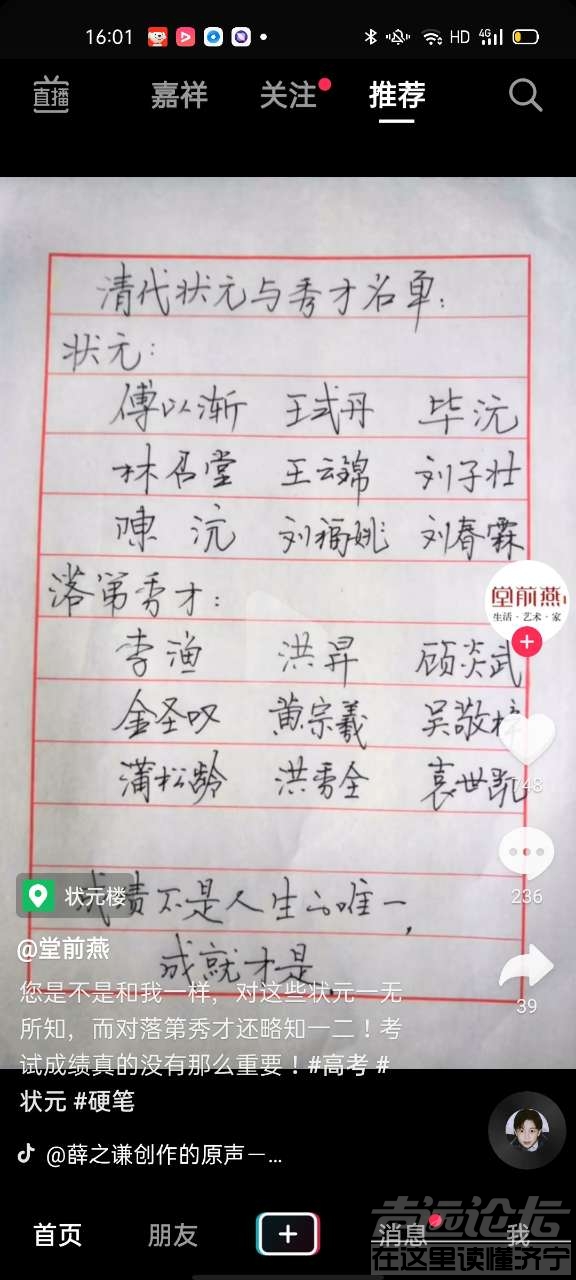 16:01
HD 4G
直播 嘉祥 关注 推荐
清代状元与秀才名单：
状元：
傅以渐 王式丹 毕沅
林召堂 王云锦 刘子壮
陳沅 刘福姚 刘春霖
落第秀才：
李渔 洪昇 顾炎武
金圣叹 黄宗羲 吴敬梓
蒲松龄 洪秀全 袁世凯
成绩不是人生的唯一，
成就才是.
堂前燕
生活·艺术·家
748
236
39
状元楼
@堂前燕
您是不是和我一样，对这些状元一无
所知，而对落第秀才还略知一二！考
试成绩真的没有那么重要！#高考 #
状元 #硬笔
@薛之谦创作的原声一...
首页 朋友 消息 我
论坛
在这里读懂济宁